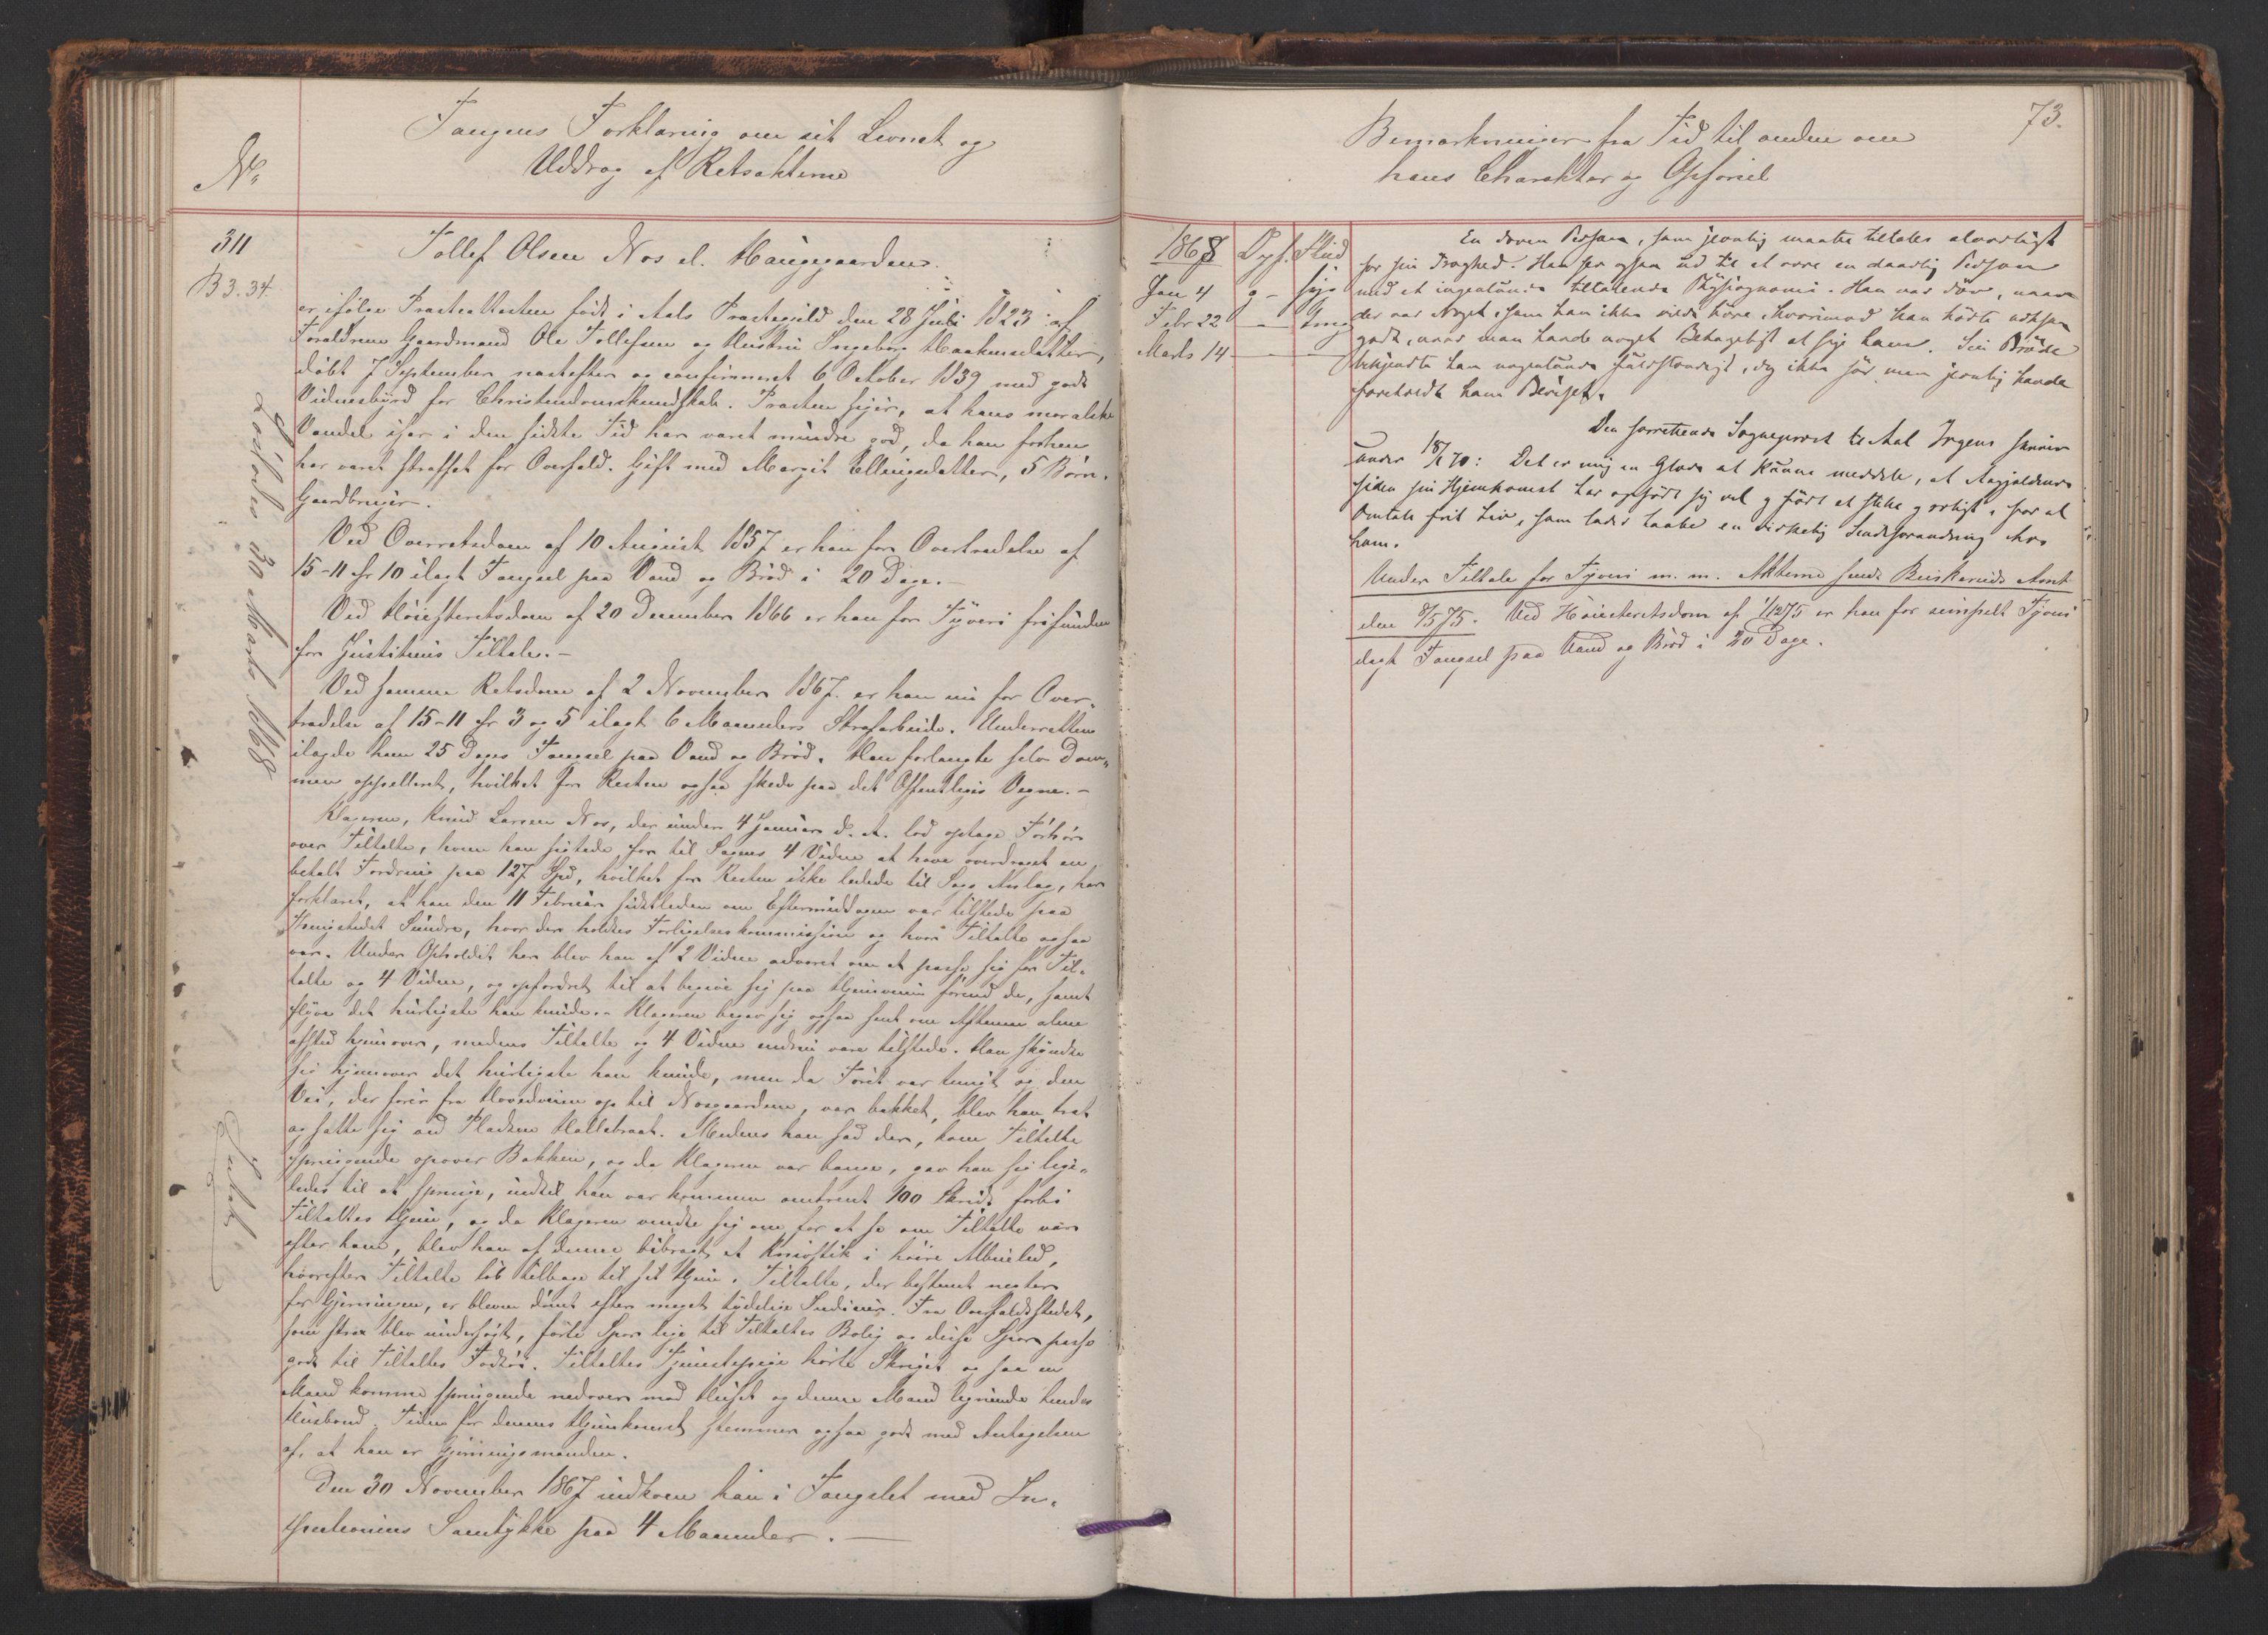 No.
Fangens Forklaring om sit Levnet og
Uddrag af Retsakterne
311
B 3.34.
Løslades 30 Marts 1868
Tollef Olsen Nos el. Haugegaarden.
er ifølge Præsteattesten født i Aals Præstegjeld den 28 Juli 1823 af
Forældrene Gaardmand Ole Tollefsen og Hustru Ingeborg Haakensdatter,
døbt 7 September næstefter og confirmeret 6 October 1839 med godt
Vidnesbyrd for Christendomskundskab. Præsten siger, at hans moralske
Vandel især i den sidste Tid har været mindre god, da han forhen
har været straffet for Overfald. Gift med Margit Ellingsdatter, 5 Børn.
Gaardbruger.
Ved Overretsdom af 10 August 1857 er han for Overtrædelse af
15-11 § 10 ilagt Fængsel paa Vand og Brød i 20 Dage.-
Ved Høiesteretsdom af 20 December 1866 er han for Tyveri frifunden
for Justitiens Tiltale.-
Ved samme Retsdom af 2 November 1867. er han nu for Over-
trædelse af 15-11 § 3 og 5 ilagt 6 Maaneders Strafarbeide. Underretten
ilagde ham 25 Dages Fængsel paa Vand og Brød. Han forlangte selv Dom-
men appelleret, hvilket for Resten ogsaa skede paa det Offentliges Vegne.-
Klageren, Knud Larsen Nos, der under 4 Januar d. A. lod optage Forhør
over Tiltalte, hvem han sigtede for til Sagens 4 Vidne at have overdraget en
betalt Fordring paa 127 Spd, hvilket for Resten ikke ledede til Sags Anlæg, har
forklaret, at han den 11 Februar sidstleden om Eftermiddagen var tilstede paa
Thingstedet Sundre, hvor der holdtes Forligelseskommission og hvor Tiltalte ogsaa
var. Under Opholdet her blev han af 2 Vidne advaret om at passe sig for Til-
talte og 4 Vidne, og opfordret til at begive sig paa Hjemveien førend de, samt
flyve det hurtigste han kunde.- Klageren begav sig ogsaa sent om Aftenen alene
afsted hjemover, medens Tiltalte og 4 Vidne endnu vare tilstede. Han skyndte
sig hjemover det hurtigste han kunde, men da Føret var tungt og den
Vei, der fører fra Hovedveien op til Nosgaardene, var bakket, blev han træt
og satte sig ved Pladsen Hallebraat. Medens han sad der, kom Tiltalte
springende opover Bakken, og da Klageren var bange, gav han sig lige-
ledes til at springe, indtil han var kommen omtrent 100 Skridt forbi
Tiltaltes Hjem, og da Klageren vendte sig om for at se om Tiltalte var
efter ham, blev han af denne bibragt et Knivstik i høire Albueled,
hvorefter Tiltalte løb tilbage til sit Hjem. Tiltalte, der bestemt negter
for Gjerningen, er bleven dømt efter meget tydelige Indicier. Fra Overfaldsstedet,
som strax blev undersøgt, førte Spor lige til Tiltaltes Bolig og disse Spor passe
godt til Tiltaltes Fodtøi. Tiltaltes Tjenestepige hørte Skriget og saa en
Mand komme springende nedover mod Huset og denne Mand lignede hendes
Husbond. Tiden for dennes Hjemkomst stemmer ogsaa godt med Antagelsen
af, at han er Gjerningsmanden.
Den 30 November 1867 indkom han i Fængslet med In-
spectionens Samtykke paa 4 Maaneder.-
73.
Bemærkninger fra Tid til anden om
hans Charakter og Opførsel
1868 Opf. Flid
Jan 4 g -
Febr 22 -
Marts 14 -
En doven Person, som jevnlig maatte tiltales alvorligt
for sin Dræghed. Han ser ogsaa ud til at være en daarlig Person
med et ingenlunde tiltalende Physiognomi. Han var døv, naar
der var Noget, som han ikke vilde høre, hvorimod han hørte nok saa
godt, naar man havde noget Behageligt at sige ham. Sin Brøde
bekjendte han ingenlunde fuldstændigt, dog ikke før man jevnlig havde
foreholdt ham Beviset.
Den forrettende Sognepræst til Aal Irgens skriver
under 18/1 70: Det er mig en Glæde at kunne meddele, at Angjældende
siden sin Hjemkomst har opført sig vel og ført et stille og ærligt, for al
Omtale frit Liv, som lader haabe en virkelig Sindsforandring hos
ham.
Under Tiltale for Tyveri m. m. Akterne sendt Buskeruds Amt
den 8/5 75. Ved Høiesteretsdom af 1/12 75 er han for simpelt Tyveri
ilagt Fængsel paa Vand og Brød i 20 Dage.